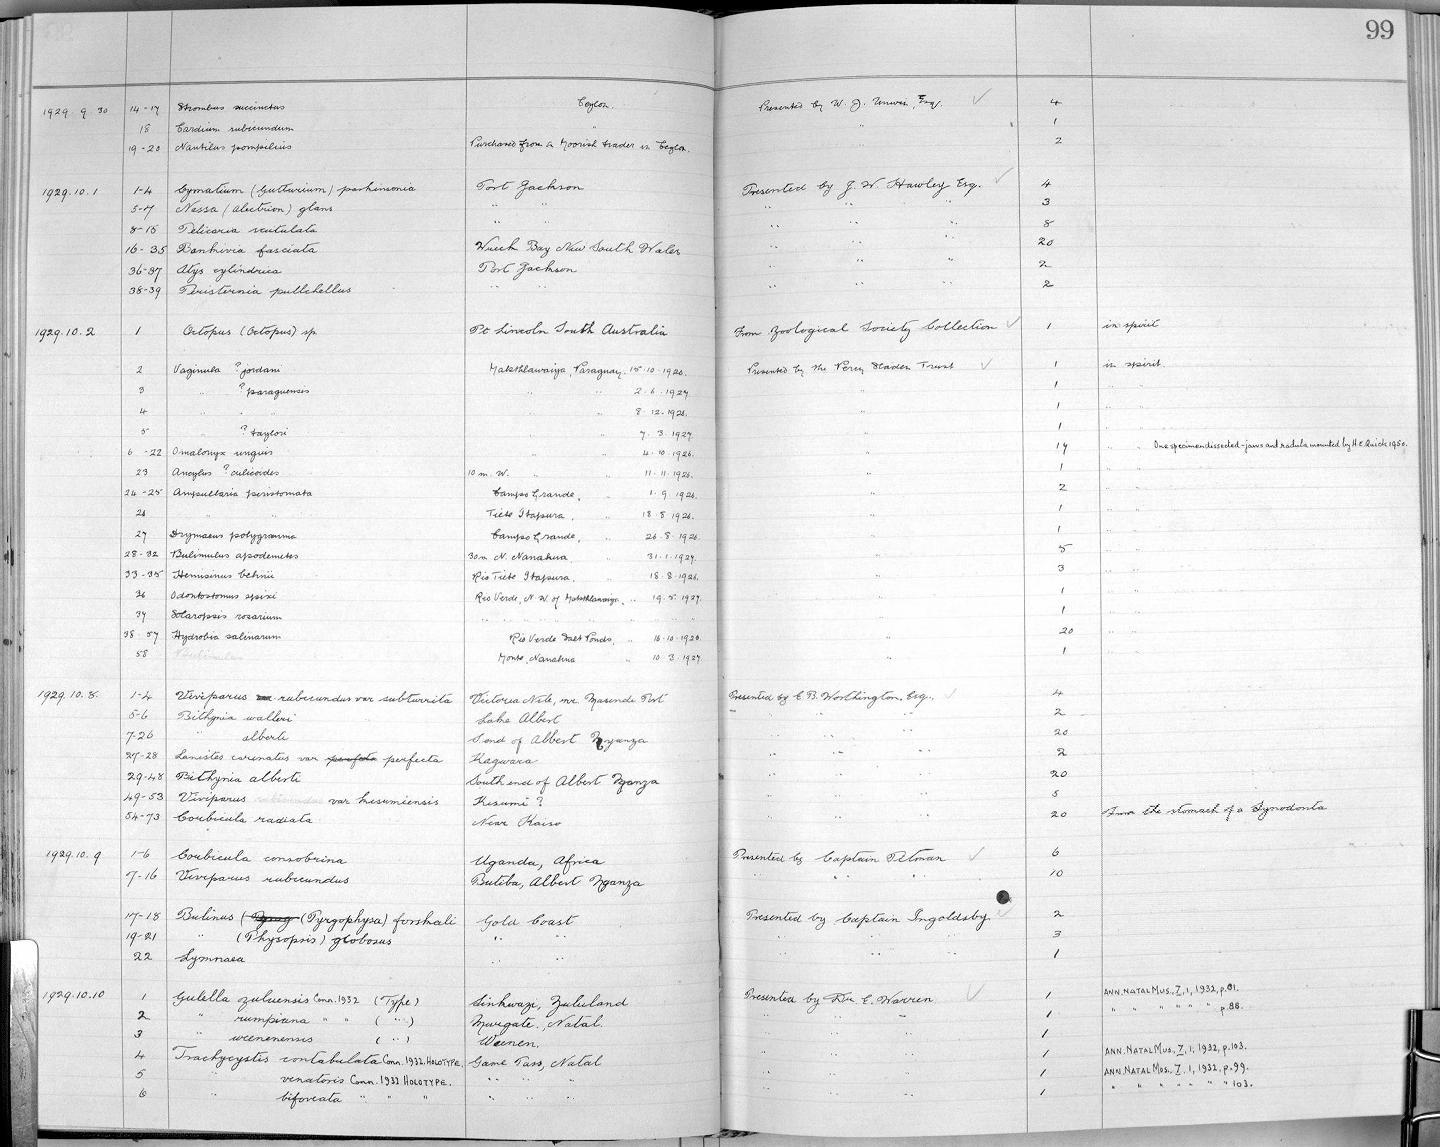 99
1929. 9. 30 14-17 Strombus succinctus Ceylon. Presented by W. J. Unwin, Esq. ✓ 4
18 Cardium rubicundum " " 1
19-20 Nautilus pompilius Purchased from a Moorish trader in Ceylon. " 2
1929.10.1 1-4 Cymatium (Gutturium) parkinsonia Port Jackson Presented by J. W. Hawley Esq. ✓ 4
5-7 Nassa (Alectrion) glans " " " " " 3
8-15 Pelicaria scutulata " " " " " 8
16-35 Bankivia fasciata Wreck Bay New South Wales " " " 20
36-37 Atys cylindrica Port Jackson " " " 2
38-39 Peristernia pullchellus " " " " " 2
1929.10.2 1 Octopus (Octopus) sp. Pt Lincoln South Australia From Zoological Society Collection ✓ 1 in spirit
2 Vaginula ? jordani Makthlawaiya, Paraguay. 15.10.1926. Presented by the Percy Sladen Trust ✓ 1 in spirit.
3 " ? paraguensis " " 2.6.1927 " 1 " "
4 " " " " 8.12.1926. " 1 " "
5 " ? taylori " " 7.3.1927 " 1 " "
6-22 Omalonyx unguis " " 4.10.1926. " 17 " " One specimen dissected - jaws and radula mounted by H.E. Quick 1950.
23 Ancylus ? culicoides 10 m. W. " " 11.11.1926. " 1 " "
24-25 Ampullaria peristomata Campo Grande, " 1.9.1926. " 2 " "
26 " " Tiete Itapura, " 18.8.1926. " 1 " "
27 Drymaeus polygramma Campo Grande, " 26.8.1926. " 1 " "
28-32 Bulimulus apodemetes 30 m N. Nanahua " 31.1.1927. " 5 " "
33-35 Hemisinus behnii Rio Tiete Itapura, " 18.8.1926. " 3 " "
36 Odontostomus spixi Rio Verde, N.W. of Makthlawaiya, " 19.5.1927. " 1 " "
37 Solaropsis rosarium " " " " " " 1 " "
38-57 Hydrobia salinarum Rio Verde Salt Ponds, " 16.10.1926. " 20 " "
58 Bulimulus Monte, Nanahua " 10.3.1927. " 1 " "
1929.10.8. 1-4 Viviparus rubicundus var subturrita Victoria Nile, nr Masindi Port Presented by E. B. Worthington, Esq. ✓ 4
5-6 Bithynia walleri Lake Albert " " " 2
7-26 " alberti S end of Albert Nyanza " " " 20
27-28 Lanistes carinatus var perfecta Kagwara " " " 2
29-48 Bithynia alberti South end of Albert Nyanza " " " 20
49-53 Viviparus rubicundus var kisumiensis Kisumi ? " " " 5
54-73 Corbicula radiata Near Kaiso " " " 20 From the stomach of a Synodonta
1929.10.9 1-6 Corbicula consobrina Uganda, Africa Presented by Captain Pitman ✓ 6
7-16 Viviparus rubicundus Butiba, Albert Nyanza " " " 10
17-18 Bulinus (Pyrgophysa) forskali Gold Coast Presented by Captain Ingoldsby. ✓ 2
19-21 " (Physopsis) globosus " " " " " 3
22 Lymnaea " " " " " 1
1929.10.10 1 Gulella zuluensis Conn. 1932 (Type) Sinkwazi, Zululand Presented by Dr E. Warren ✓ 1 ANN. NATAL MUS., 7, 1, 1932, p. 81.
2 " rumpiana " " ( " ) Margate, Natal. " " 1 " " " " " p. 88.
3 " weenenensis ( " ) Weenen. " " 1
4 Trachycystis contabulata Conn. 1932 HOLOTYPE. Game Pass, Natal " " 1 ANN. NATAL MUS., 7, 1, 1932, p. 103.
5 " venatoris Conn. 1932 HOLOTYPE. " " " " " 1 ANN. NATAL MUS., 7, 1, 1932, p. 99.
6 " bifoveata " " " " " " " " 1 " " " " " " 103.